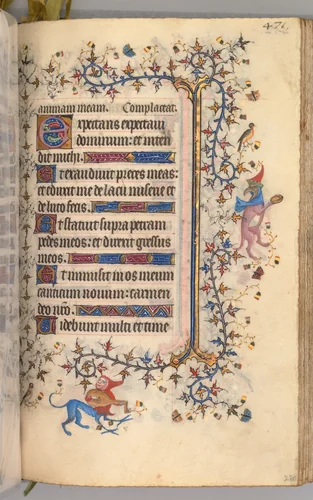 476
animam meam. Complaceat.
Expectans expectaui
dominum: et inten
dit michi.
Et exaudiuit preces meas:
et eduxit me de lacu miserie et
de luto fecis.
Et statuit supra petram
pedes meos: et direxit gressus
meos.
Et inmisit in os meum
canticum nouum: carmen
deo nr̄o.
Videbunt multi et time